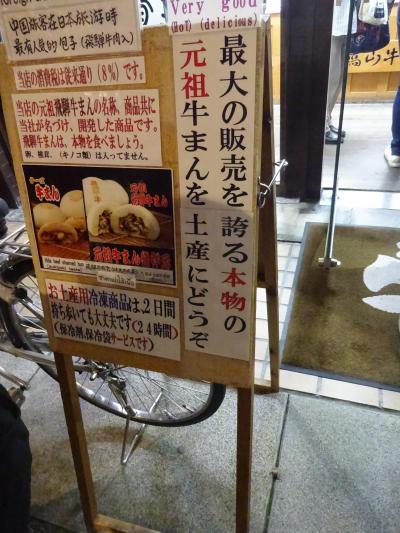 中国旅客在日本旅游時
最有人気的包子(飛騨牛肉入)
当店の消費税は従来通り(8%)です。
当店の元祖飛騨牛まんの名称、商品共に
当社が名づけ、開発した商品です。
飛騨牛まんは、本物を食べましょう。
卵、椎茸、(キノコ類)は入ってません。
牛まん
元祖牛まん
お土産用冷凍商品は、2日間
持ち歩いても大丈夫です(24時間)
(保冷剤、保冷袋サービスです)
Very good
(Hot) (delicious)
最大の販売を誇る本物の
元祖牛まんを土産にどうぞ